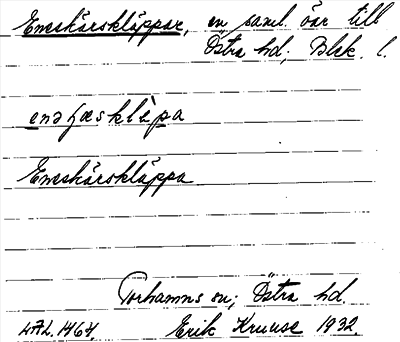 Eneskärskläppar, en saml. öar till
Östra hd, Blek. l.
enəʃæsklèpa
Eneskärskläppa
Torhamns sn; Östra hd.
LAL. 1464, Erik Kruuse 1932.